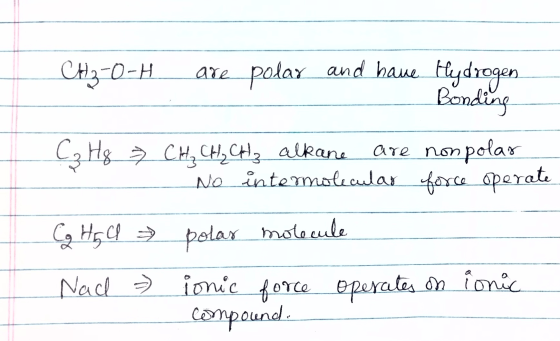 CH3-O-H are polar and have Hydrogen
Bonding
C3H8 ⇒ CH3CH2CH3 alkane are nonpolar
No intermolecular force operate
C2H5Cl ⇒ polar molecule
Nacl ⇒ ionic force operates on ionic
compound.